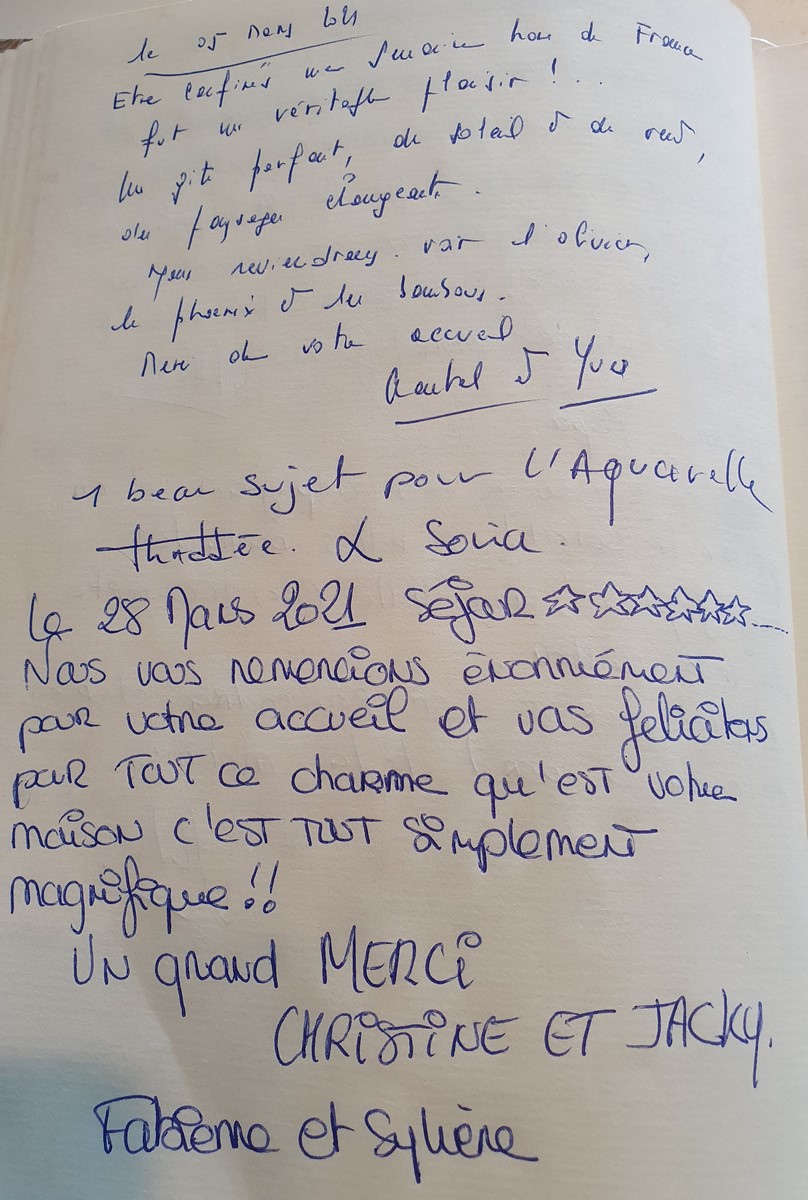 le 05 Mars 2021
Etre confinés une semaine hors de France
fut un véritable plaisir !...
Un gîte parfait, du soleil & du vent,
des paysages changeants.
Nous reviendrons voir l'olivier,
le phoenix & les bambous.
Merci de votre accueil
& Yves
1 beau sujet pour l'Aquarelle
& Sonia.
Le 28 Mars 2021 Séjour ☆☆☆☆☆☆....
Nous vous remercions énormément
pour votre accueil et vous felicitons
pour TOUT ce charme qu'est votre
maison c'est TOUT simplement
magnifique !!
UN grand MERCi
CHRiSTiNE ET JACKY.
Fabienne et Sylvène